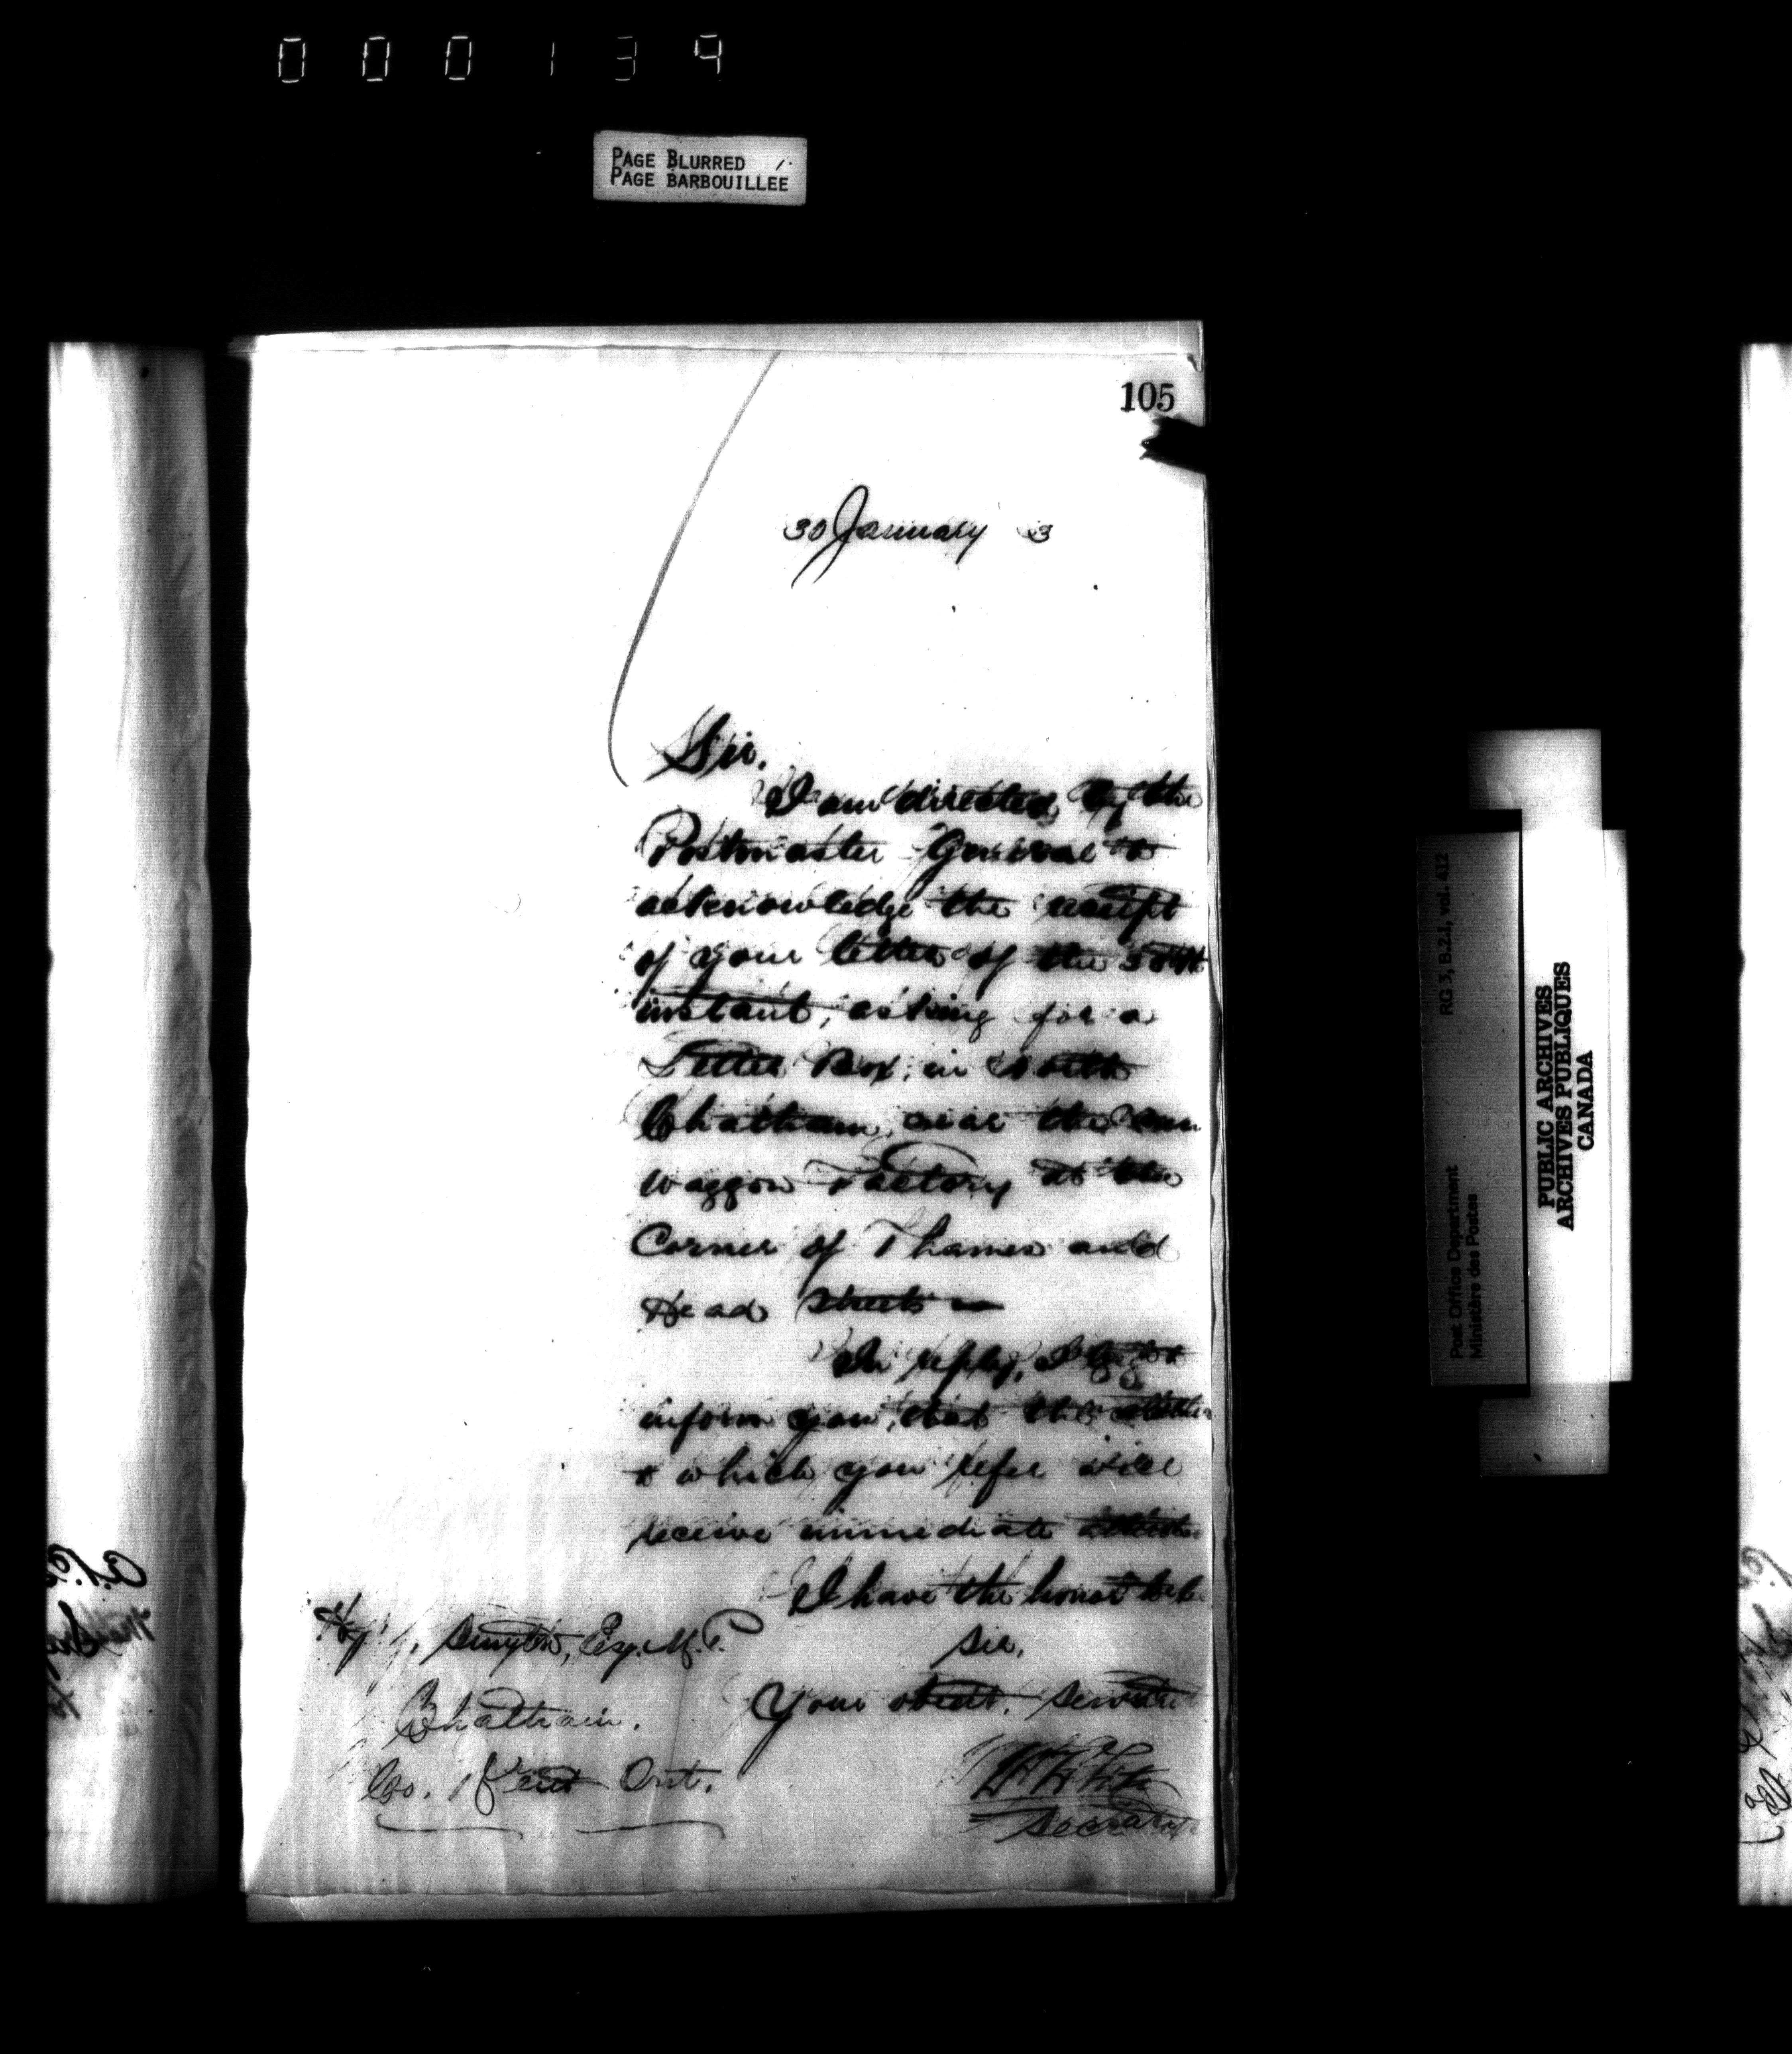 000134
PAGE BLURRED
PAGE BARBOUILLÉE
105
30 January 3
Sir.
I am directed by the
Postmaster General to
acknowledge the receipt
of your letter of the
instant, asking for a
Letter Box, in North
Chatham, near the
waggon Factory at the
Corner of Thames and
Head Streets
In reply, I beg to
inform you, that the matter
to which you refer will
receive immediate attention
I have the honor to be
Sir,
Your obedt. servant
Secretary
Hy. Smyth, Esq. M.P.
Chatham.
Co. Kent Ont.
RG 3, B.2.I, vol. 412
Post Office Department
Ministère des Postes
PUBLIC ARCHIVES
ARCHIVES PUBLIQUES
CANADA